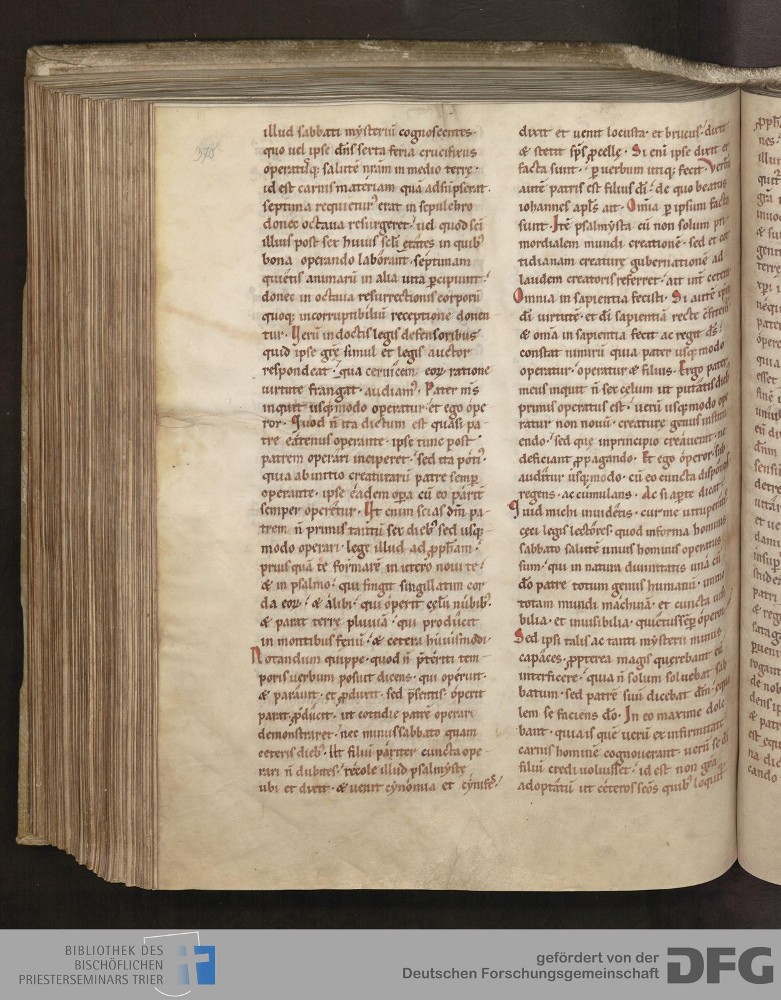 370
illud sabbati mysteriū cognoscentes.
quo uel ipse dn̄s sexta feria crucifixus
operatusq; salutē nr̄am in medio terrę.
id est carnis materiam quā adsūpserat.
septima requietur' erat in sepulchro
donec octaua resurgeret. uel quod sc̄i
illius post sex huius sc̄li ętates in quib'
bona operando laborant. septimam
quietis animarū in alia uita p̄cipiunt.
donec in octaua resurrectionis corporū
quoq; incorruptibiliū receptione donen
tur. Uerū indoctis legis defensoribus
quid ipse grę simul et legis auctor
respondeat. qua ceruicem eoꝝ ratione
uirtute frangat. audiam'. Pater m̄s
inquit usq; modo operatur. et ego ope
ror. Quod n̄ ita dictum est quasi pa
tre eatenus operante. ipse tunc post
patrem operari inciperet. sed ita poti'.
quia ab initio creaturarū patre semp̄
operante. ipse eadem opa cū eo parit̄
semper operetur. Ut enim scias dm̄ pa
trem n̄ primis tantū sex dieb' sed usq;
modo operari. lege illud ad pp̄hām.
priusquā te formarē in utero noui te.
& in psalmo. qui fingit singillatim cor
da eoꝝ. & alibi. qui operit cęlū nubib'.
& parat terrę pluuiā. qui producit
in montibus fenū. & cetera huiusmodi
Notandum quippe. quod n̄ p̄teriti tem
poris uerbum posuit dicens. qui operuit.
& parauit. et p̄duxit. sed p̄sentis. operit
parat. p̄ducit. ut cotidie patrē operari
demonstraret. nec minus sabbato quam
ceteris dieb'. Ut filiū pariter cuncta ope
rari n̄ dubites. recole illud psalmystę
ubi et dixit. & uenit cynomia et cynifes.
dixit et uenit locusta. et brucus. dixit
& stetit sp̄s p̄cellę. Si eni ipse dixit et
facta sunt. p̄ uerbum utiq; fecit. Verbū
autē patris est filius dī. de quo beatus
iohannes apl̄s ait. Omia p̄ ipsum facta
sunt. Itē psalmysta cū non solum pri
mordialem mundi creationē. sed et co
tidianam creaturę gubernationē ad
laudem creatoris referret. ait int̄ cetera
Omnia in sapientia fecisti. Si autē
dī uirtutē. et dī sapientiā recte
& omīa in sapientia fecit ac regit ds̄.
constat nimirū quia pater usq; modo
operatur. operatur & filius. Ergo pater
meus inquit n̄ sex celum ut putatis dieb
primis operatus est. uerū usq; modo ope
ratur non nouū. creaturę genus institu
endo. sed que in principio creauerit. ne
deficiant p̄pagando. Et ego operor. sub
auditur usq; modo. cū eo cuncta disponens
regens. ac cumulans. Ac si apte dicat.
Quid michi inuidetis. cur me uituperatis
cęci legis lectores. quod in forma hominis
sabbato salutē unius hominis operatus
sum. qui in natura diuinitatis una cū
dō patre totum genus humanū.
totam mundi machinā. et cuncta
bilia. et inuisibilia. quietus sēp operor.
Sed ipsi talis ac tanti mysterii minus
capaces. p̄pterea magis querebant eū
interficere. quia n̄ solum soluebat sab
batum. sed patrē suū dicebat dm̄. equa
lem se faciens dō. In eo maxime dole
bant. quia is que uerū ex infirmitate
carnis hominē cognouerant. uerū se dī
filiū credi uoluisset. id est non gr̄a
adoptatū ut ceteros sc̄os quib' loquit
BIBLIOTHEK DES
BISCHÖFLICHEN
PRIESTERSEMINARS TRIER
gefördert von der
Deutschen Forschungsgemeinschaft
DFG